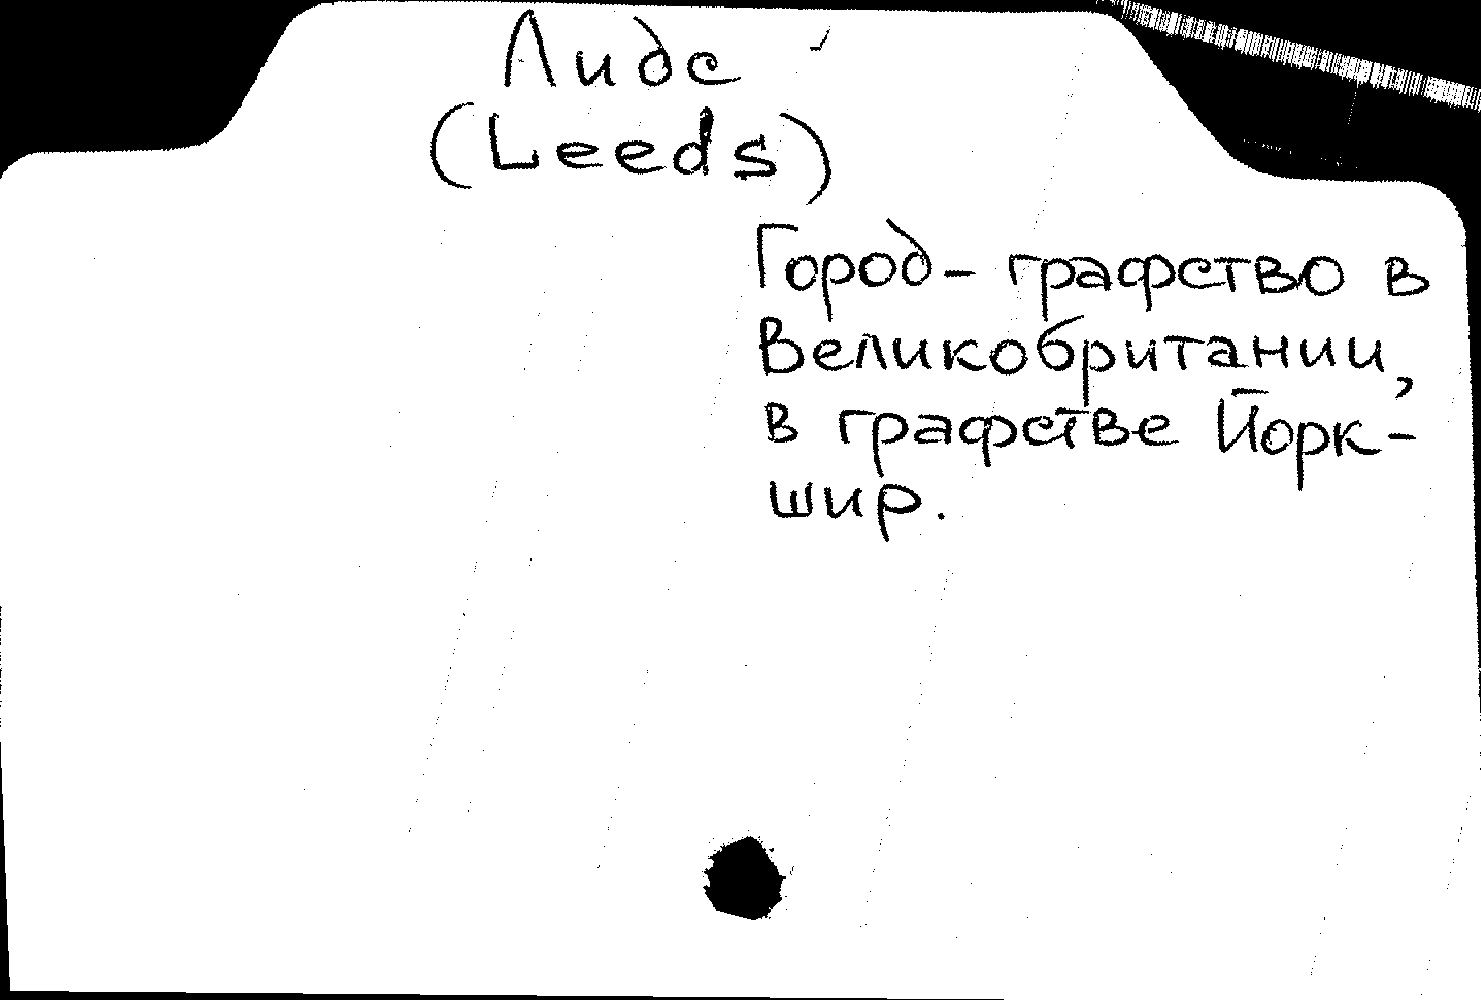 Лидс
(Leeds)
Город- графство в
Великобритании,
в графстве Йорк-
шир.